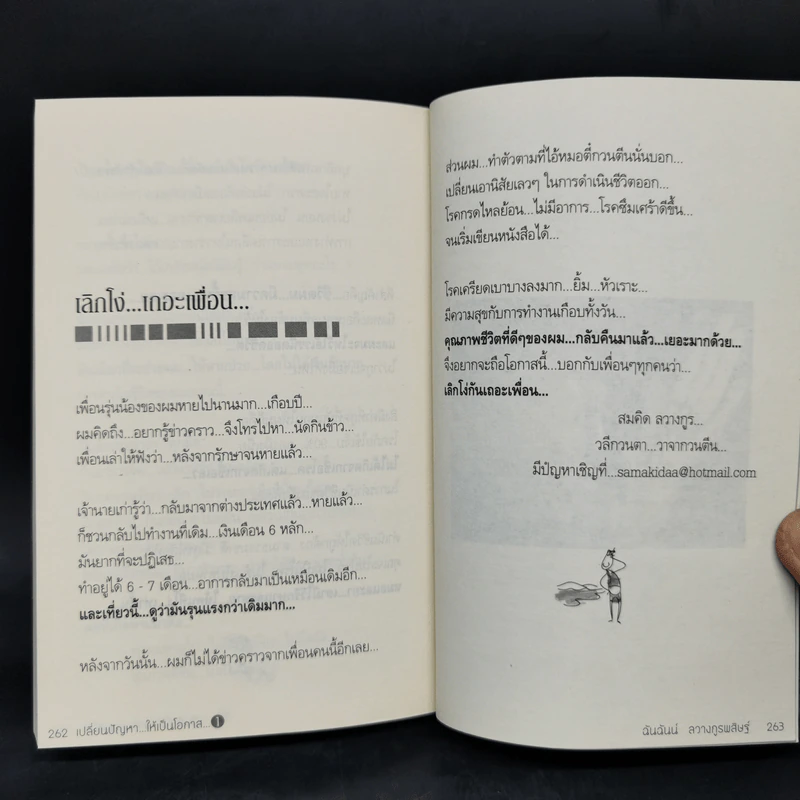 เลิกโง่...เถอะเพื่อน...
เพื่อนรุ่นน้องของผมหายไปนานมาก...เกือบปี...
ผมคิดถึง...อยากรู้ข่าวคราว...จึงโทรไปหา...นัดกินข้าว...
เพื่อนเล่าให้ฟังว่า...หลังจากรักษาจนหายแล้ว...
เจ้านายเก่ารู้ว่า...กลับมาจากต่างประเทศแล้ว...หายแล้ว...
ก็ชวนกลับไปทำงานที่เดิม...เงินเดือน 6 หลัก...
มันยากที่จะปฏิเสธ...
ทำอยู่ได้ 6 - 7 เดือน...อาการกลับมาเป็นเหมือนเดิมอีก...
และเที่ยวนี้...ดูว่ามันรุนแรงกว่าเดิมมาก...
หลังจากวันนั้น...ผมก็ไม่ได้ข่าวคราวจากเพื่อนคนนี้อีกเลย...
262 เปลี่ยนปัญหา...ให้เป็นโอกาส...1
ส่วนผม...ทำตัวตามที่ไอ้หมอตี๋กวนตีนนั่นบอก...
เปลี่ยนเอานิสัยเลวๆ ในการดำเนินชีวิตออก...
โรคกรดไหลย้อน...ไม่มีอาการ...โรคซึมเศร้าดีขึ้น...
จนเริ่มเขียนหนังสือได้...
โรคเครียดเบาบางลงมาก...ยิ้ม...หัวเราะ...
มีความสุขกับการทำงานเกือบทั้งวัน...
คุณภาพชีวิตที่ดีๆของผม...กลับคืนมาแล้ว...เยอะมากด้วย...
จึงอยากจะถือโอกาสนี้...บอกกับเพื่อนๆทุกคนว่า...
เลิกโง่กันเถอะเพื่อน...
สมคิด ลวางกูร...
วลีกวนตา...วาจากวนตีน...
มีปัญหาเชิญที่...samakidaa@hotmail.com
ฉันฉันน์ ลวางกูรพสิษฐ์ 263